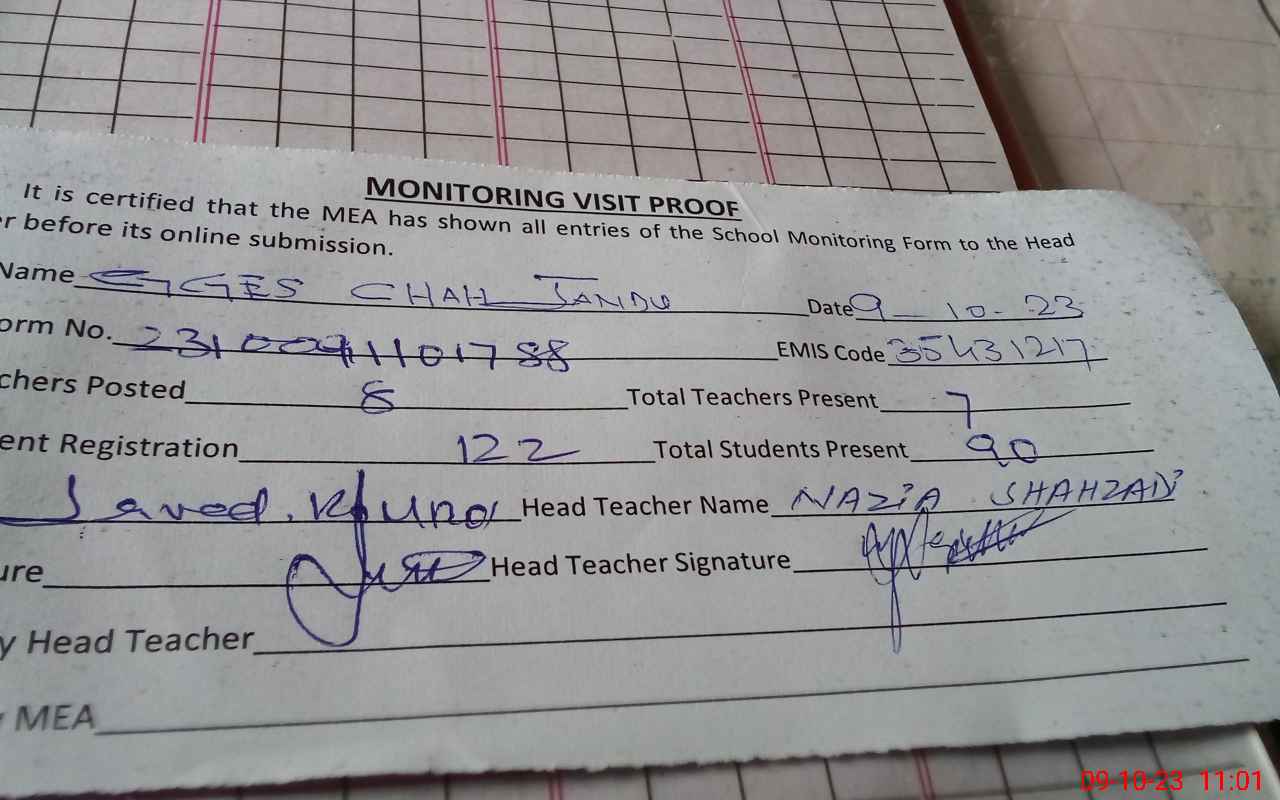 MONITORING VISIT PROOF
It is certified that the MEA has shown all entries of the School Monitoring Form to the Head
r before its online submission.
Name GGES CHAH JANDU Date 9-10-23
orm No. 23100911101788 EMIS Code 35431217
chers Posted 8 Total Teachers Present 7
ent Registration 122 Total Students Present 90
Javed Head Teacher Name NAZIA SHAHZADI
ure Head Teacher Signature
y Head Teacher
MEA
09-10-23 11:01